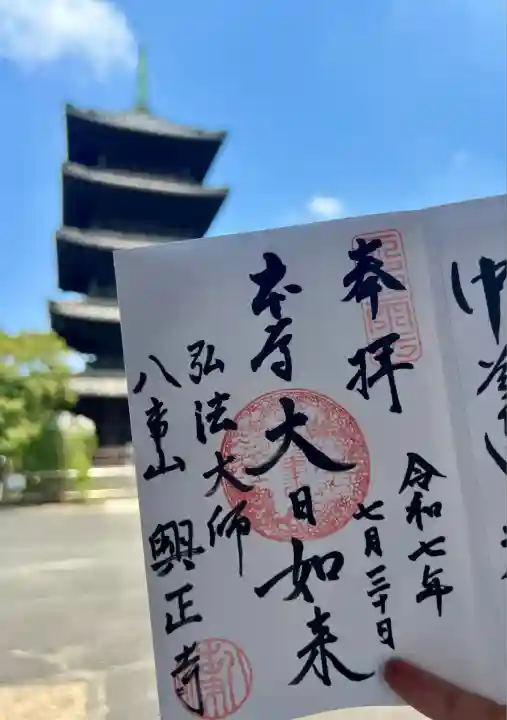 奉拝
令和七年
七月三十日
本尊
大日如来
弘法大師
八事山
興正寺